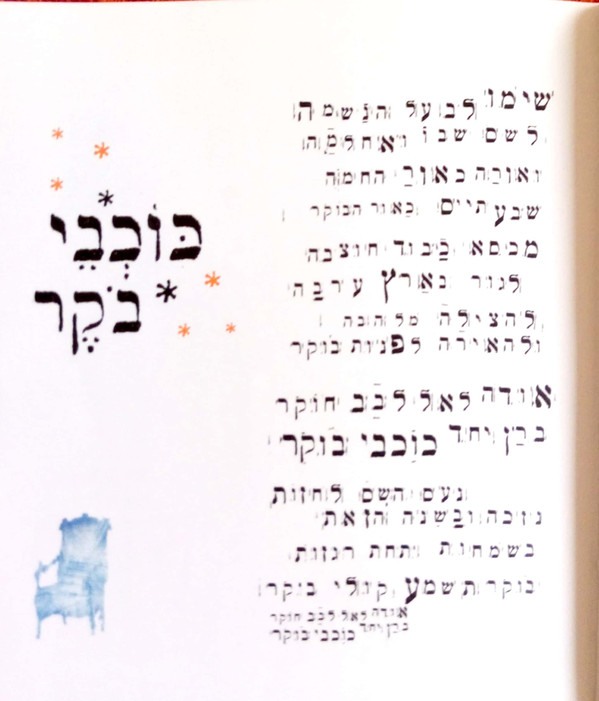 כּוֹכְבֵי
בֹּקֶר
שימו לב על הנשמה
לשם שבו ואחלמה
ואורה כאור החמה
שבעתיים כאור הבוקר
מכסא כבוד חוצבה
לגור בארץ ערבה
להצילה מלהבה
ולהאירה לפנות בוקר
אודה לאל לבב חוקר
ברן יחד כוכבי בוקר
נעם השם לחזות
נזכה ובשנה הזאת
בשמחות תחת רגזות
בוקר תשמע קולי בוקר
אודה לאל לבב חוקר
ברן יחד כוכבי בוקר